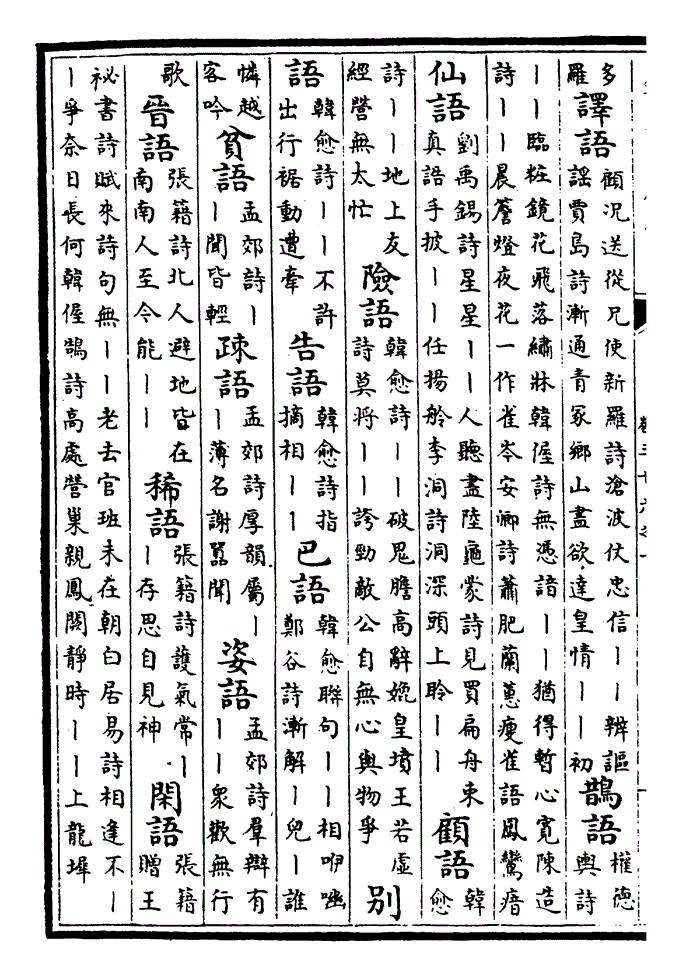 多羅譯語顧况送從兄使新羅詩滄波仗忠信丨丨辨謳謠賈島詩漸通青冢鄉山盡欲達皇情丨丨初鵲語權德輿詩
丨丨臨粧鏡花飛落繡牀韓偓詩無憑諳丨丨猶得暫心寬陳造詩丨丨晨簷燈夜花一作雀岑安卿詩蕭肥蘭蕙瘦雀語鳳鸞瘖
仙語劉禹錫詩星星丨丨人聽盡陸龜蒙詩見買扁舟束真誥手披丨丨任揚舲李洞詩洞深頭上聆丨丨顧語韓愈
詩丨丨地上友經營無太忙險語韓愈詩丨丨破鬼膽高辭媲皇墳王若虛詩莫將丨丨誇勁敵公自無心與物爭别
語韓愈詩丨丨不許出行裾動遭牽告語韓愈詩指摘相丨丨巴語韓愈聯句丨丨相咿嚘鄭谷詩漸解丨兒丨誰
憐越客吟貧語孟郊詩丨丨聞皆輕疎語孟郊詩厚韻屬丨丨薄名謝囂聞姿語孟郊詩羣辯有丨丨衆歡無行
歌晉語張籍詩北人避地皆在南南人至今能丨丨稀語張籍詩護氣常丨丨存思自見神閑語張籍贈王
祕書詩賦來詩句無丨丨老去官班未在朝白居易詩相逢不丨丨爭奈日長何韓偓鵲詩高處營巢親鳳闕靜時丨丨上龍墀